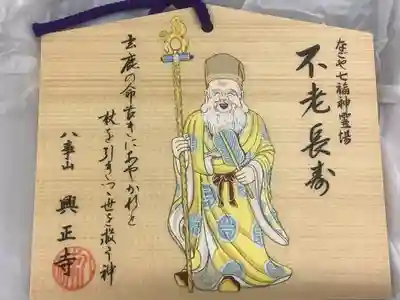 なごや七福神霊場
不老長寿
玄鹿の命長きにあやかれと
杖を引きつつ世を救う神
八事山
興正寺